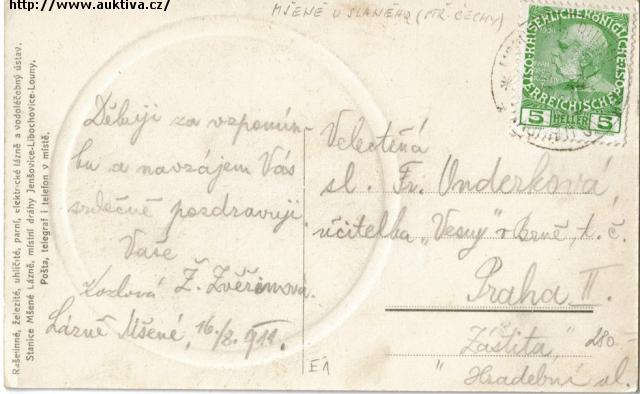 http://www.auktiva.cz/
MŠENÉ U SLANÉHO (STŘ. ČECHY)
Rašelinné, železité, uhličité, parní, elektrické lázně a vodoléčebný ústav.
Stanice Mšené Lázně, místní dráhy Jenšovice-Libochovice-Louny.
Pošta, telegraf i telefon v místě.
Děkuji za vzpomín-
ku a navzájem Vás
srdečně pozdravuji
Vaše
Kozlová Ž. Zvěřinova.
Lázně Mšené, 16./8. 911.
E1
Velectěná
sl. Fr. Underková,
učitelka „Vesny" v Brně, t. č.
Praha II.
„Záštita,"
Hradební ul.
280-
5 HELLER 5